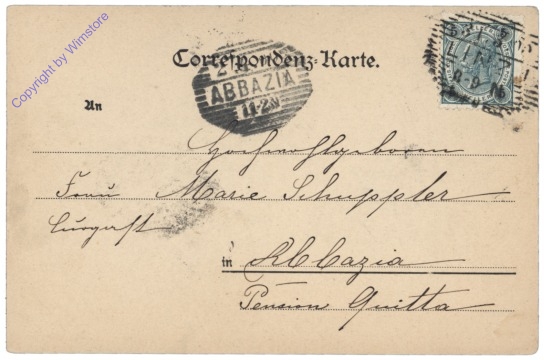 Copyright by Wimstore
Correspondenz-Karte.
ABBAZIA
An
Hochwohlgeboren
Frau Marie Schuppler
Curgast
in Abbazia
Pension Quitta